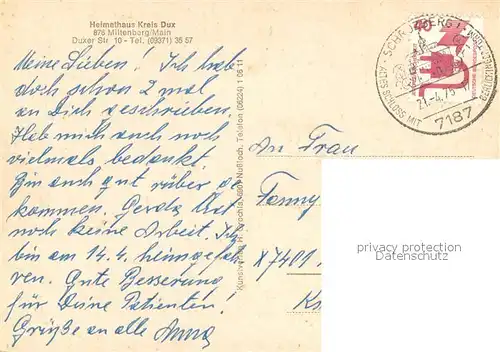 Heimathaus Kreis Dux
876 Miltenberg/Main
Duxer Str 10 - Tel. (09371) 35 57
Meine Lieben! Ich hab
doch schon 2 mal
an Dich geschrieben.
Hab mich auch noch
vielmals bedankt.
Bin auch gut rüber ge
kommen. Gerda hat
noch keine Arbeit. Ich
bin am 14.4. heimgefah
ren. Gute Besserung
für Deine Patienten!
Grüße an alle Anna
Kunstverlag H. 6909 Nußloch, Telefon (06224) 1 05 11
40
21.-4.75
7187
An Frau
Fanny
X7401
privacy protection
watermark